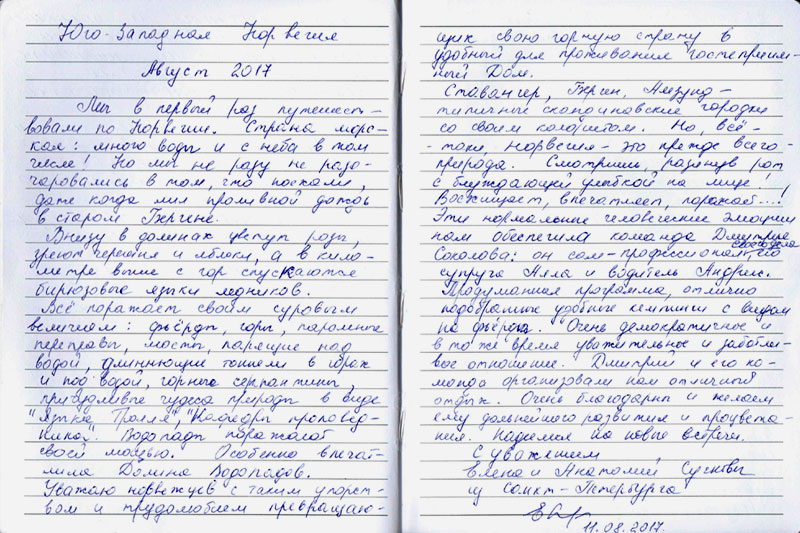 Юго-Западная Норвегия
Август 2017
Мы в первый раз путешест-
вовали по Норвегии. Страна морс-
кая: много воды и с неба в том
числе! Но мы не разу не разо-
чаровались в том, что поехали,
даже когда лил проливной дождь
в старом Бергене.
Внизу в долинах цветут розы,
зреют черешня и яблоки, а в кило-
метре выше с гор спускаются
бирюзовые языки ледников.
Всё поражает своим суровым
величием: фьёрды, горы, паромные
переправы, мосты, парящие над
водой, длиннющие тоннели в горах
и под водой, горные серпантины,
причудливые чудеса природы в виде
"Языка Тролля", "Кафедры проповед-
ника". Водопады поражают
своей мощью. Особенно впечат-
лила Долина Водопадов.
Уважаю норвежцев с таким упорст-
вом и трудолюбием превращаю-
щих свою горную страну в
удобный для проживания гостеприим-
ный Дом.
Ставангер, Берген,
типичные скандинавские городки
со своим колоритом. Но, всё-
таки, Норвегия - это прежде всего -
природа. Смотришь, разинув рот
с блуждающей улыбкой на лице!
Восхищает, впечатляет, поражает....!
Эти нормальные человеческие эмоции
нам обеспечила команда Дмитрия
Соколова: он сам - профессионал своего дела, его
супруга Алла и водитель Андрис.
Продуманная программа, отлично
подобранные удобные кемпинги с видом
на фьёрды. Очень демократичное и
в то же время уважительное и заботли-
вое отношение. Дмитрий и его ко-
манда организовали нам отличный
отдых. Очень благодарны и желаем
ему дальнейшего развития и процвета-
ния. Надеемся на новые встречи.
С уважением
Елена и Анатолий
из Санкт-Петербурга
11.08.2017.